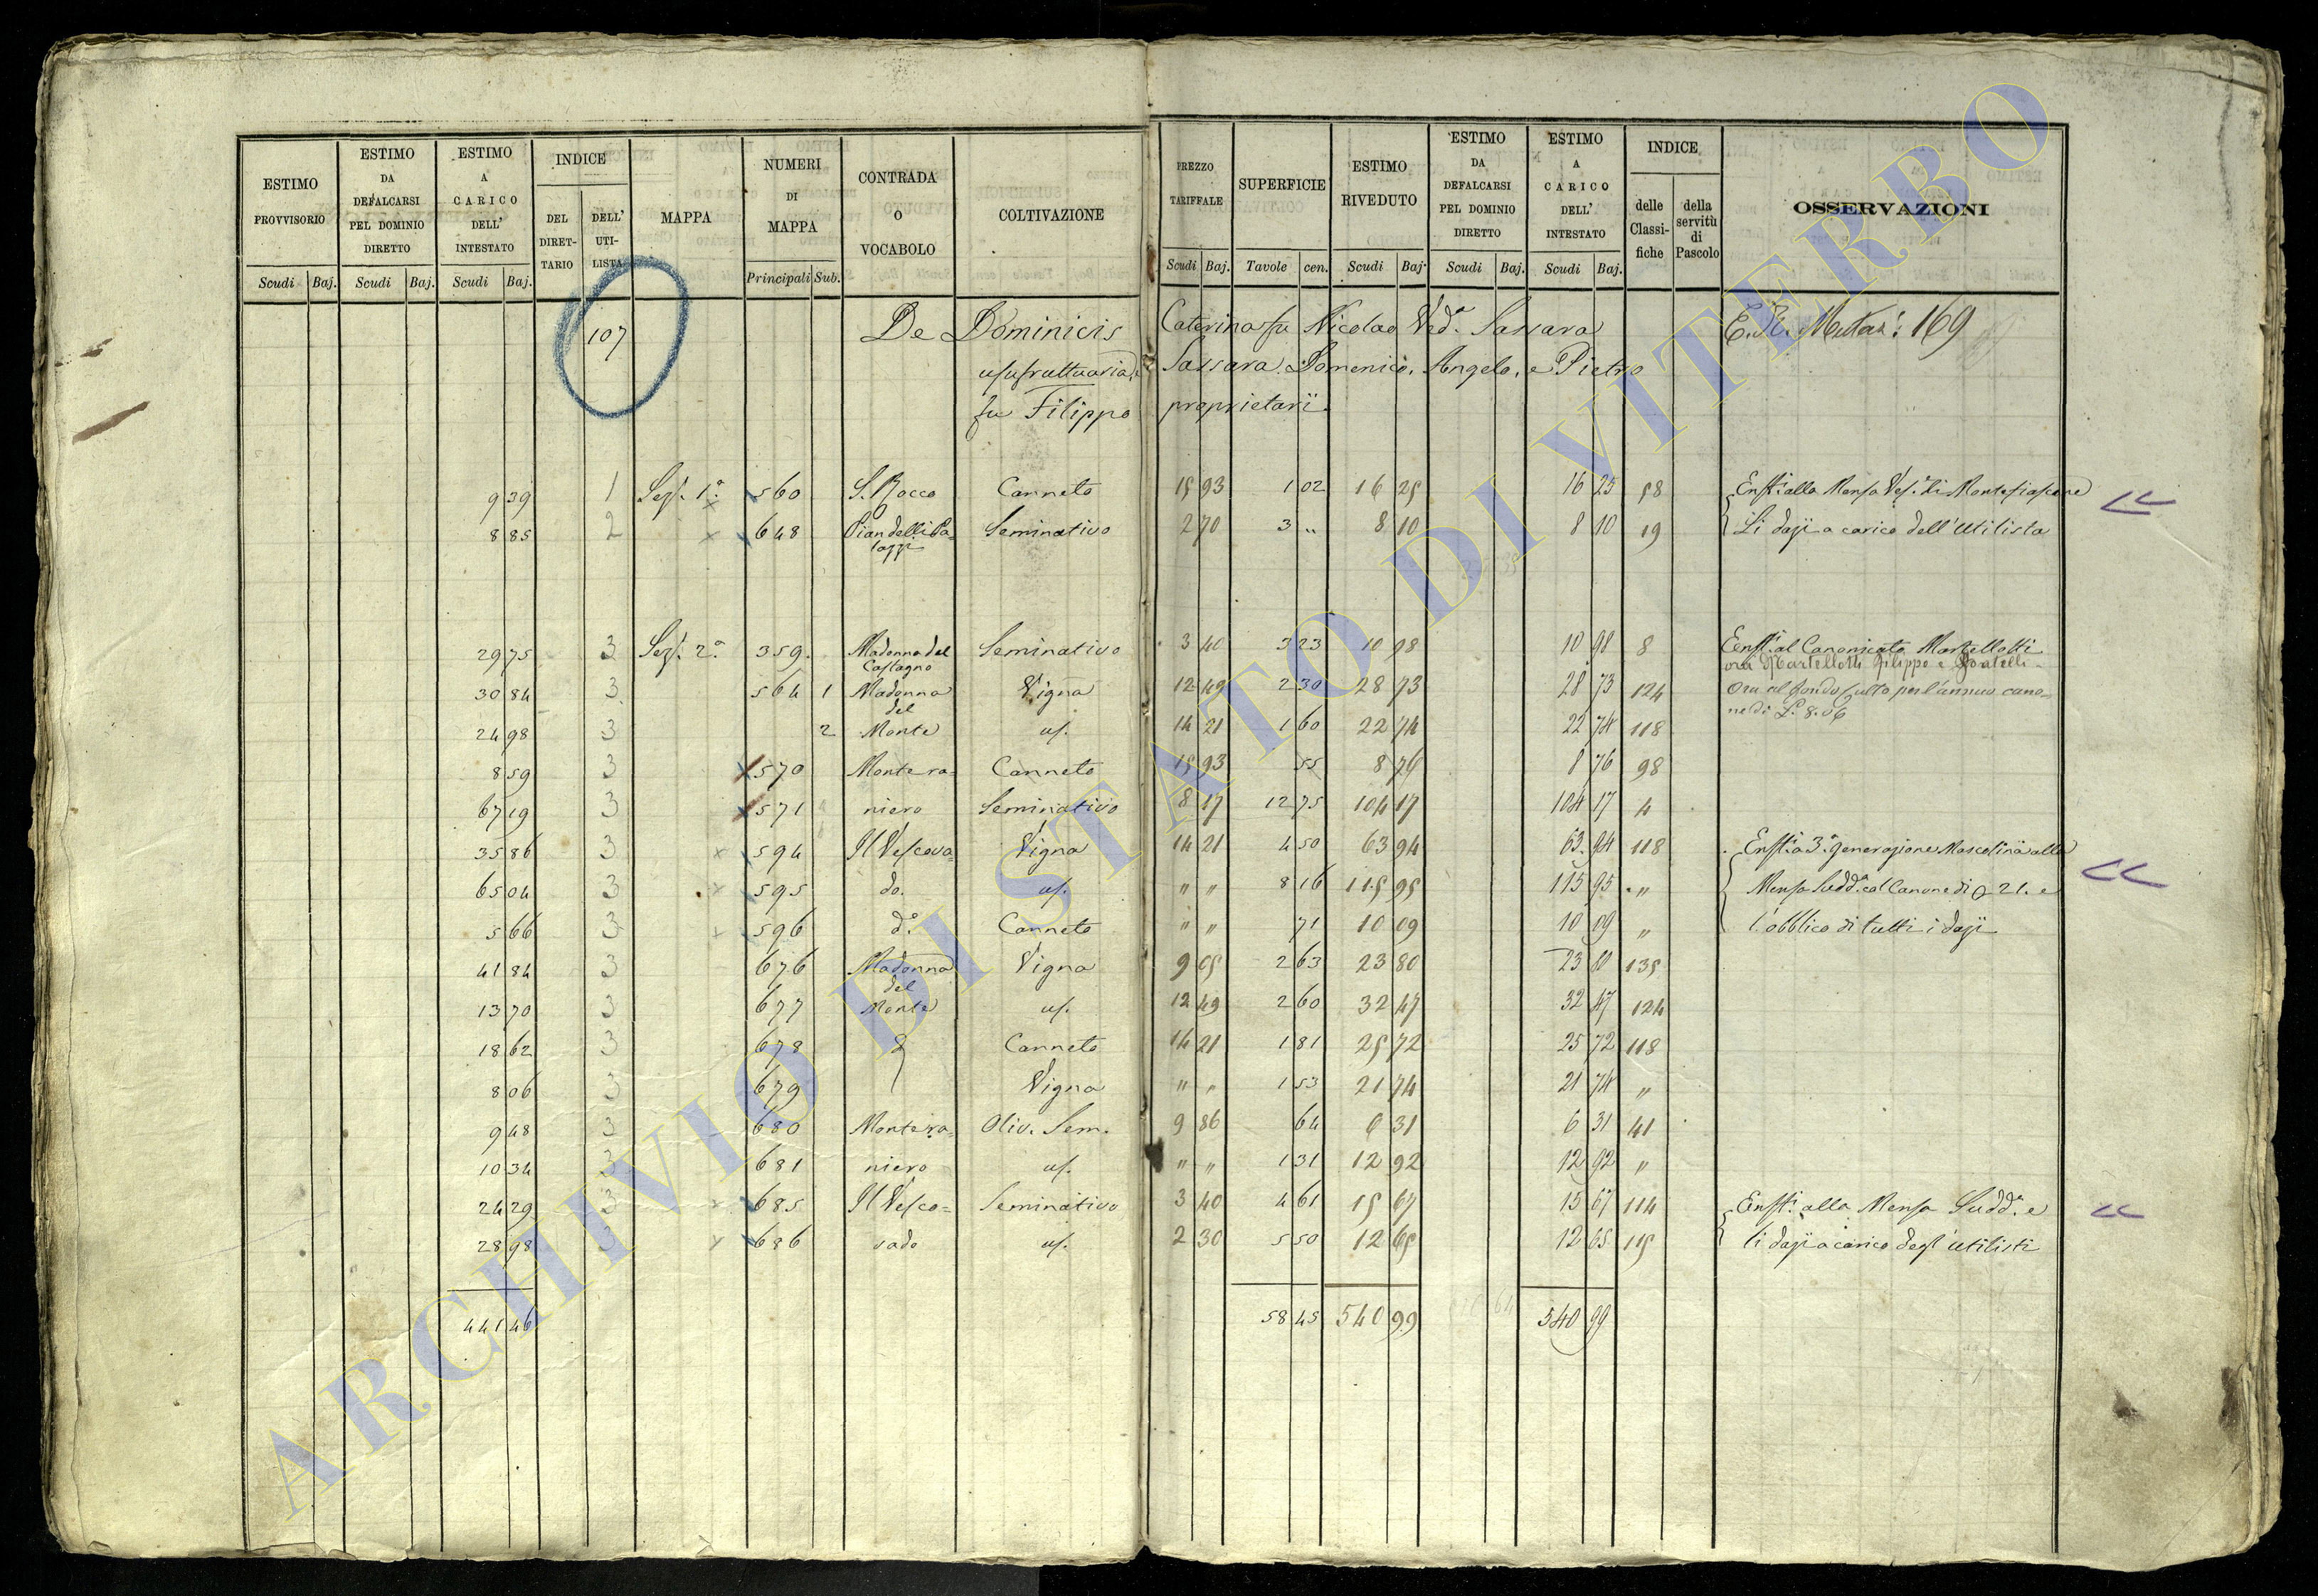 ESTIMO PROVVISORIO | ESTIMO DA DEFALCARSI PEL DOMINIO DIRETTO | ESTIMO A CARICO DELL' INTESTATO | INDICE | MAPPA | NUMERI DI MAPPA | CONTRADA O VOCABOLO | COLTIVAZIONE | PREZZO TARIFFALE | SUPERFICIE | ESTIMO RIVEDUTO | ESTIMO DA DEFALCARSI PEL DOMINIO DIRETTO | ESTIMO A CARICO DELL' INTESTATO | INDICE | OSSERVAZIONI
DEL DIRETTARIO | DELL' UTILISTA | delle Classifiche | della servitù di Pascolo
Scudi | Baj. | Scudi | Baj. | Scudi | Baj. | Principali | Sub. | Scudi | Baj. | Tavole | cen. | Scudi | Baj. | Scudi | Baj. | Scudi | Baj.
107 De Dominicis Caterina fu Nicolao Ved.a Sassara 169
usufruttuaria, e Sassara Domenico, Angelo, e Pietro
fu Filippo proprietarii
9 39 | 1 | Sez. 1.a | 560 | S. Rocco | Canneto | 15 93 | 1 02 | 16 25 | 16 25 | 98 | Enf.i alla Mensa Ves.e di Montefiascone
8 85 | 2 | 648 | Pian delli Palazzi | Seminativo | 2 70 | 3 " | 8 10 | 8 10 | 19 | Li dazi a carico dell'Utilista
29 75 | 3 | Sez. 2.a | 359 | Madonna del Castagno | Seminativo | 3 40 | 3 23 | 10 98 | 10 98 | 8 | Enf.i al Canonicato Martellotti
ora Martellotti Filippo e Fratelli
30 84 | 3 | 564 | 1 | Madonna del | Vigna | 12 49 | 2 30 | 28 73 | 28 73 | 124 | Ora al fondo Culto per l'annuo cano-
ne di L. 8.06
24 98 | 3 | 2 | Monte | us. | 14 21 | 1 60 | 22 74 | 22 74 | 118
8 59 | 3 | 570 | Montera- | Canneto | 15 93 | 55 | 8 76 | 8 76 | 98
67 19 | 3 | 571 | niero | Seminativo | 8 17 | 12 75 | 104 17 | 104 17 | 4
35 86 | 3 | 594 | Il Vescova- | Vigna | 14 21 | 4 50 | 63 94 | 63 94 | 118 | Enf.i a 3.a generazione Mascolina alla
65 04 | 3 | 595 | do. | us. | " " | 8 16 | 115 95 | 115 95 | " | Mensa Sudd.a col Canone di 21. e
5 66 | 3 | 596 | d.o | Canneto | " " | 71 | 10 09 | 10 09 | " | l'obblico di tutti i dazi
41 84 | 3 | 676 | Madonna del | Vigna | 9 05 | 2 63 | 23 80 | 23 80 | 135
13 70 | 3 | 677 | Monte | us. | 12 49 | 2 60 | 32 47 | 32 47 | 124
18 62 | 3 | 678 | Canneto | 14 21 | 1 81 | 25 72 | 25 72 | 118
8 06 | 3 | 679 | Vigna | " " | 1 53 | 21 74 | 21 74 | "
9 48 | 3 | 680 | Montera- | Oliv. Sem. | 9 86 | 64 | 6 31 | 6 31 | 41
10 34 | 3 | 681 | niero | us. | " " | 1 31 | 12 92 | 12 92 | "
24 29 | 3 | 685 | Il Vesco- | Seminativo | 3 40 | 4 61 | 15 67 | 15 67 | 114 | Enf.i alla Mensa Sudd.a e
28 98 | 3 | 686 | vado | us. | 2 30 | 5 50 | 12 65 | 12 65 | 115 | li dazi a carico degl'utilisti
441 46 | 58 45 | 540 99 | 540 99
ARCHIVIO DI STATO DI VITERBO